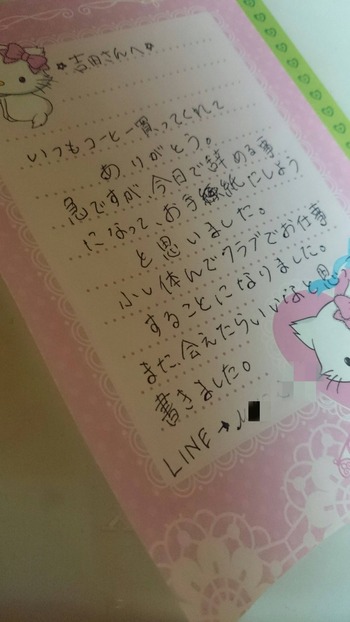 ☆吉田さんへ☆
いつもコーヒー買ってくれて
ありがとう。
急ですが、今日で辞める事
になって、お手紙にしよう
と思いました。
少し休んでクラブでお仕事
することになりました。
また、会えたらいいなと思
書きました。
LINE→